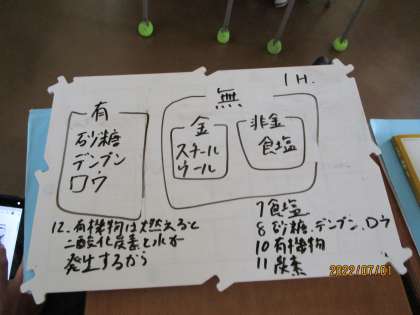 1H.
有
砂糖
デンプン
ロウ
無
金
スチール
ウール
非金
食塩
12. 有機物は燃えると
二酸化炭素と水が
発生するから
7 食塩
8 砂糖. デンプン. ロウ
10 有機物
11 炭素
2022/07/01